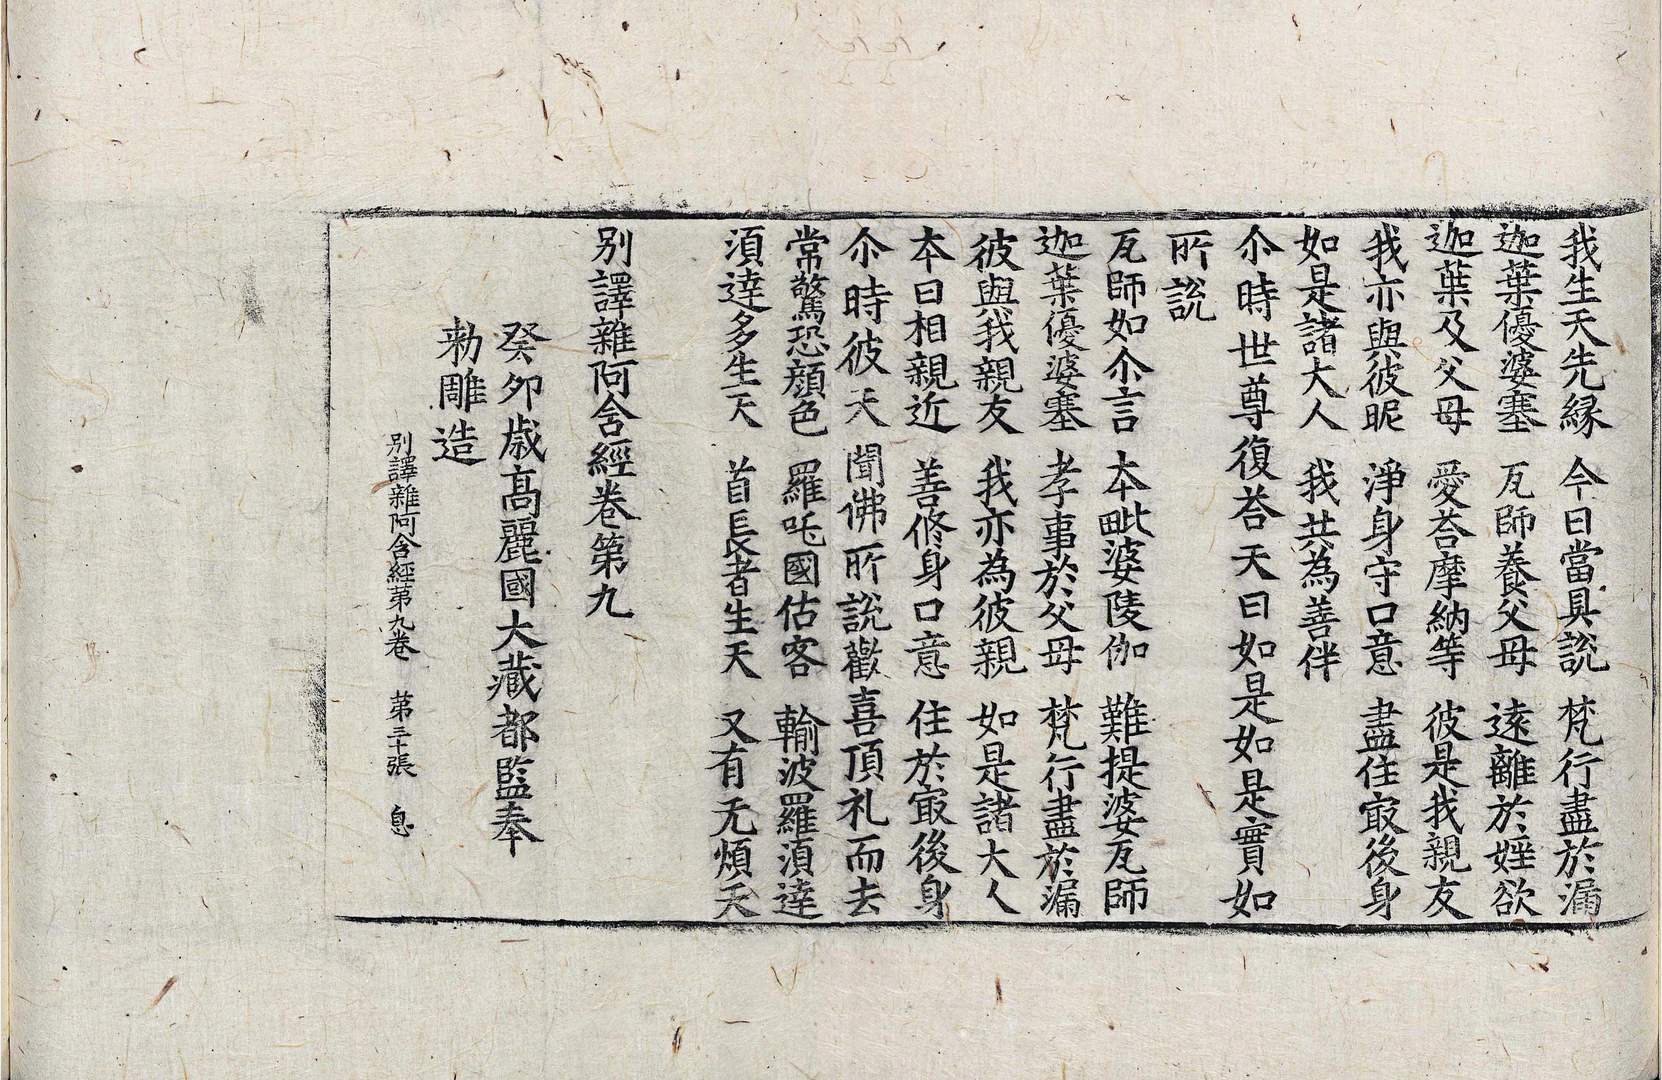 我生天先緣　今日當具說　梵行盡於漏
迦葉優婆塞　瓦師養父母　遠離於婬欲
迦葉及父母　愛荅摩納等　彼是我親友
我亦與彼昵　淨身守口意　盡住㝡後身
如是諸大人　我共為善伴
尒時世尊復荅天曰如是如是實如
所說
瓦師如尒言　本毗婆陵伽　難提婆瓦師
迦葉優婆塞　孝事於父母　梵行盡於漏
彼與我親友　我亦為彼親　如是諸大人
本曰相親近　善脩身口意　住於㝡後身
尒時彼天聞佛所說歡喜頂礼而去
常驚恐顏色　羅吒國估客　輸波羅湏達
湏達多生天　首長者生天　又有无煩天
別譯雜阿含經卷第九
癸卯歳高麗國大藏都監奉
勅雕造
別譯雜阿含經第九卷　第三十張　息